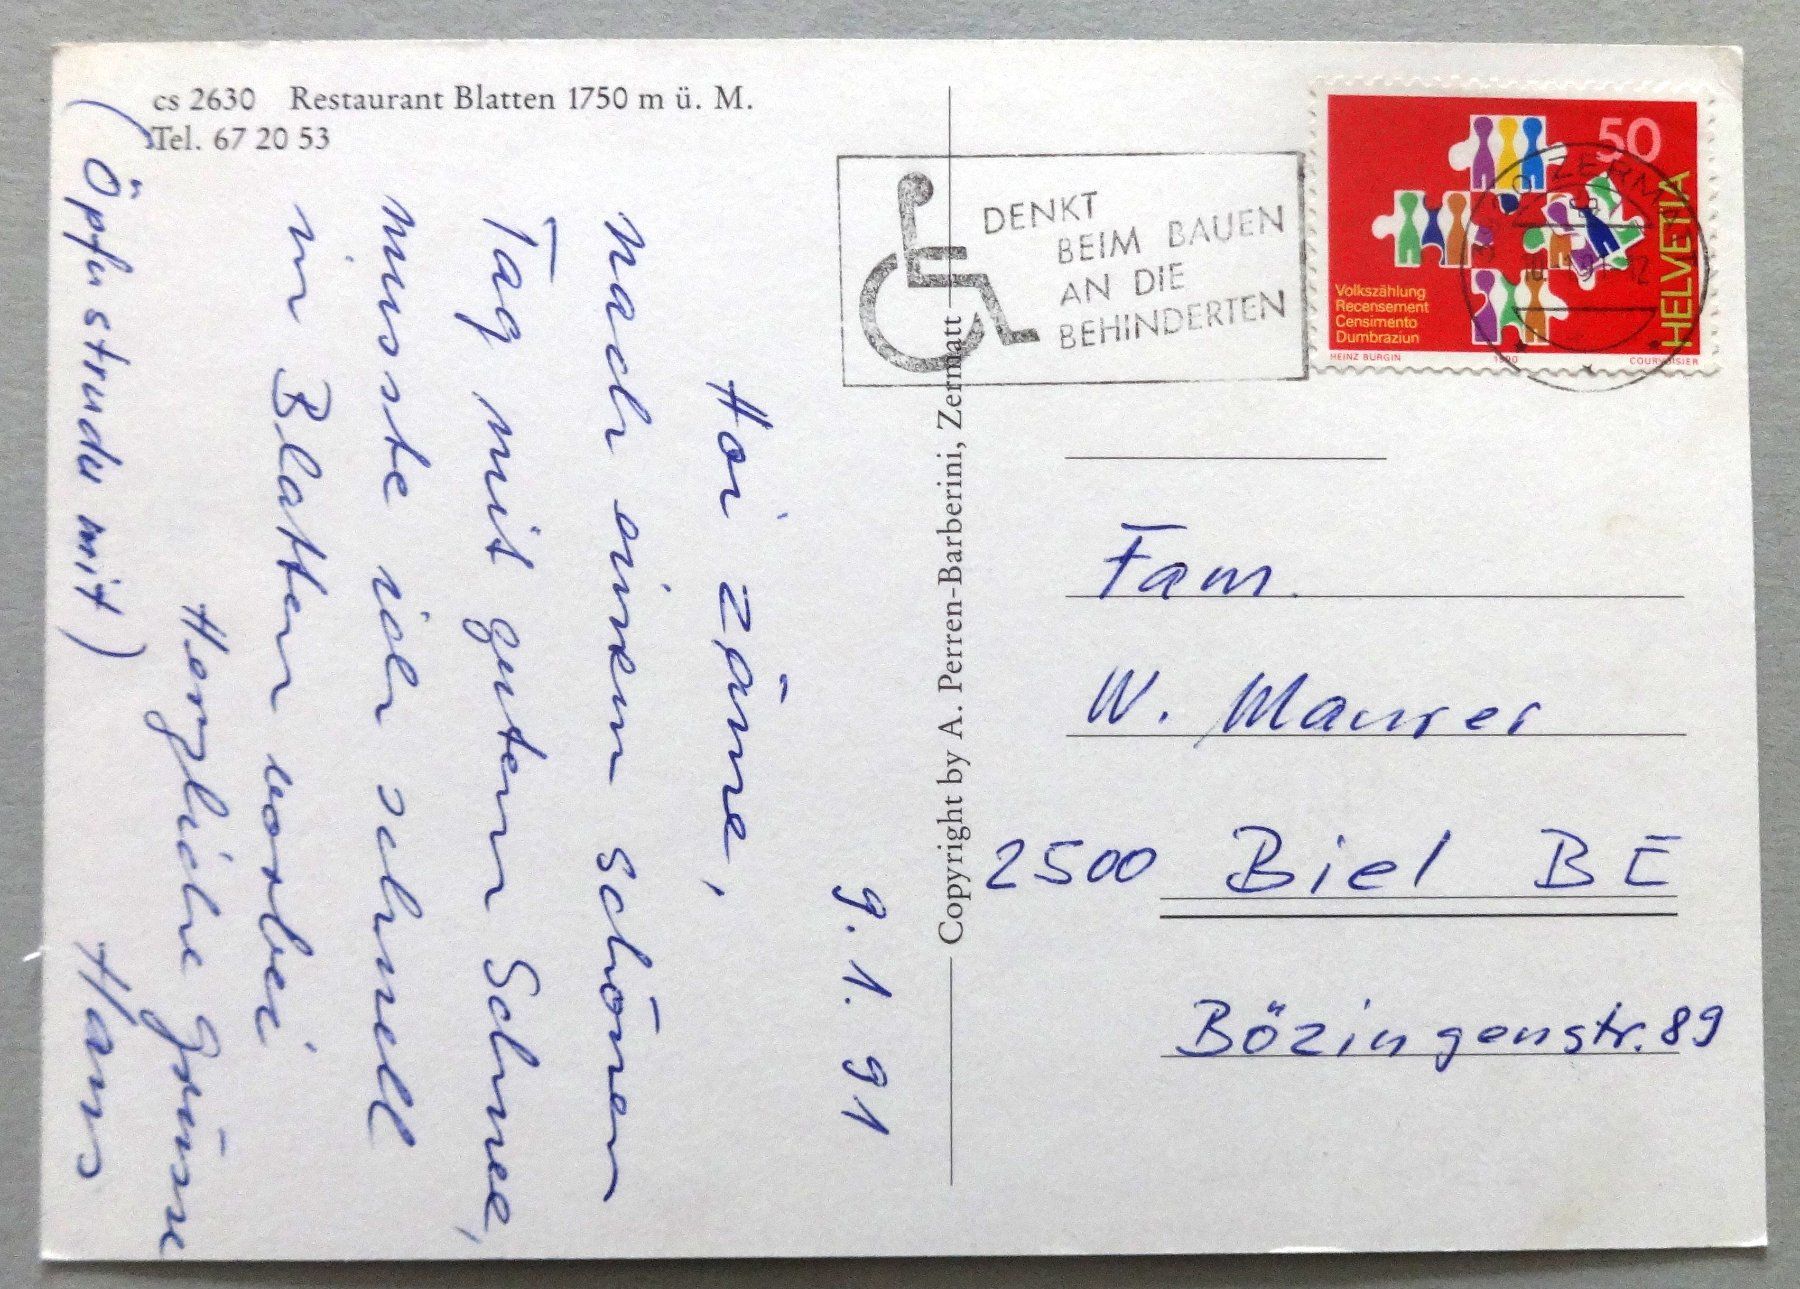 cs 2630 Restaurant Blatten 1750 m ü. M.
Tel. 67 20 53
9.1.91
Hoi zäme,
nach einem schönen
Tag mit gutem Schnee,
musste ich schnell
in Blatten vorbei
Herzliche Grüsse
Hans
(Öpfustrudu mit)
Copyright by A. Perren-Barberini, Zermatt
DENKT
BEIM BAUEN
AN DIE
BEHINDERTEN
50
HELVETIA
Volkszählung
Recensement
Censimento
Dumbraziun
HEINZ BÜRGIN 1990 COURVOISIER
ZERMATT
Fam.
W. Maurer
2500 Biel BE
Bözingenstr. 89